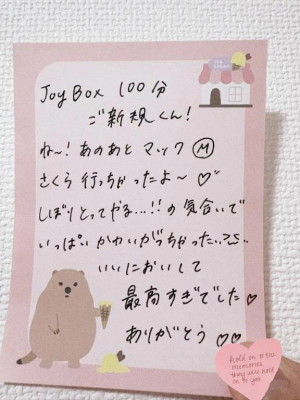 Joy Box 100分
ご新規くん!
ね〜! あのあと マック Ⓜ
さくら 行っちゃったよ〜♡
しぼりとってやる...!! の気合いで
いっぱい かわいがっちゃった...
いいにおいして
最高すぎでした♡
ありがとう♡♡
hold on to the
memories,
they will hold
on to you